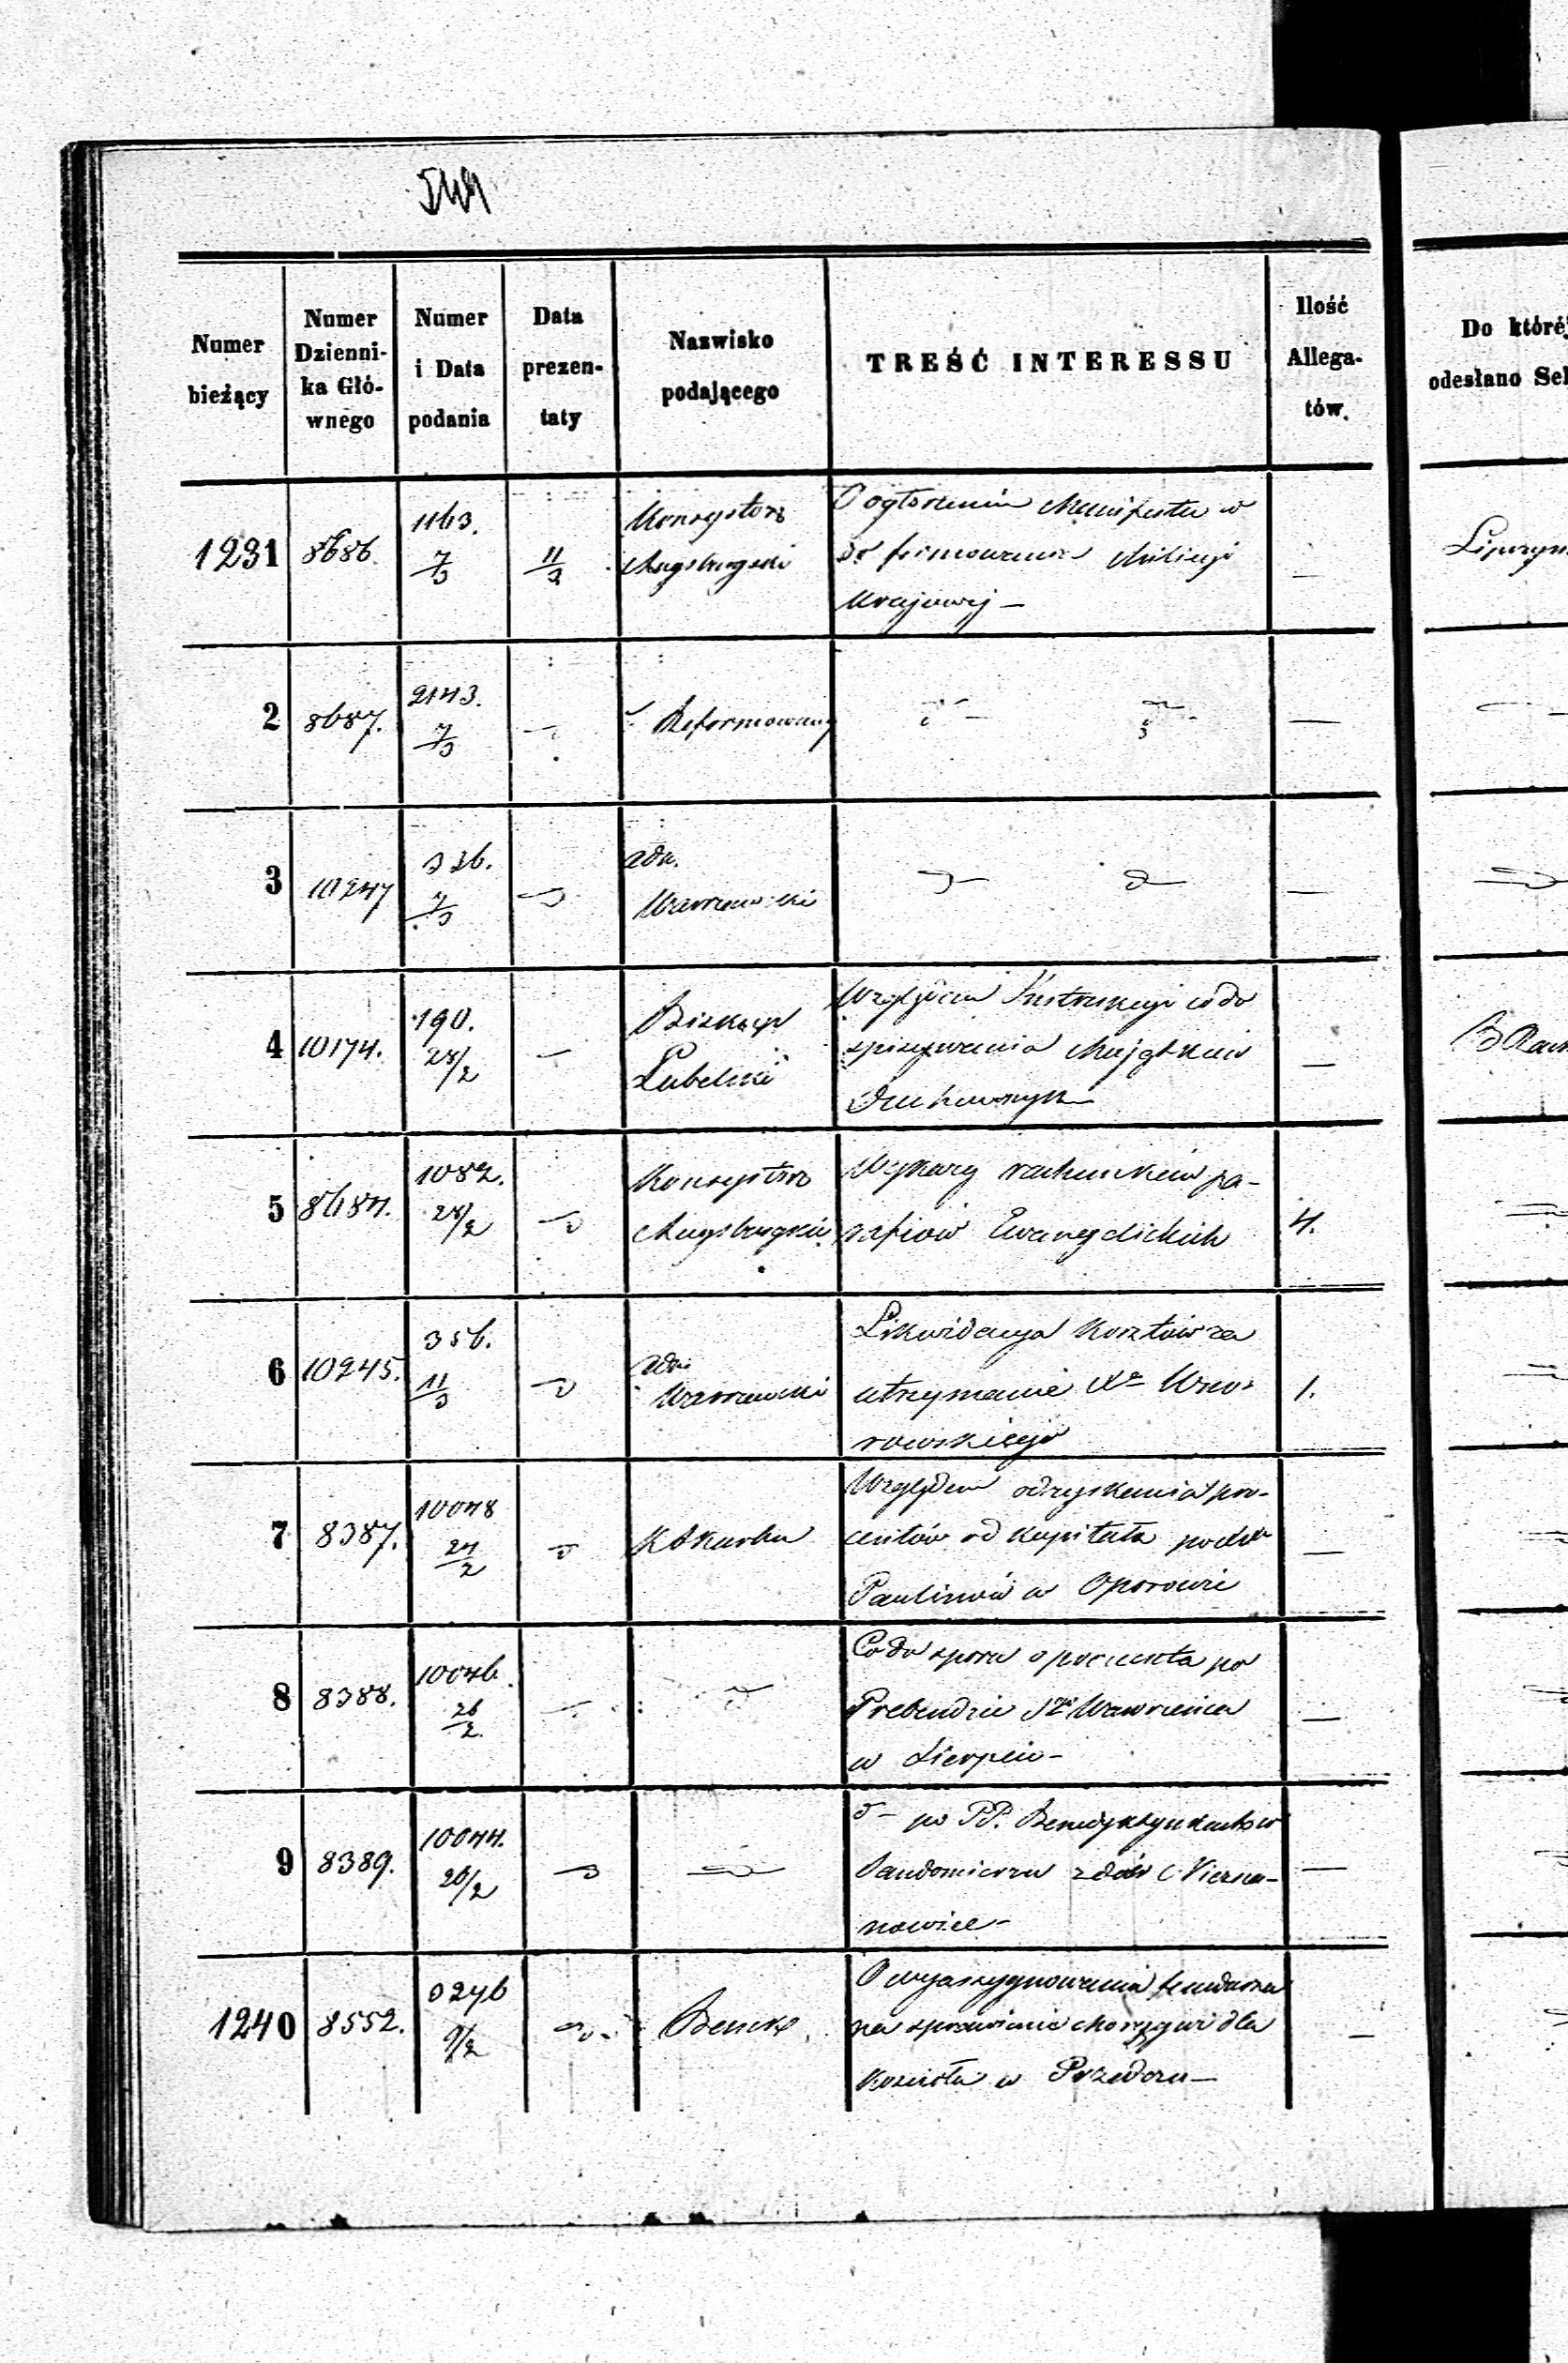 549
Numer bieżący
Numer Dzienni- ka Głó- wnego
Numer i Data podania
Data prezen- taty
Nazwisko podającego
TREŚĆ INTERESSU
Ilość Allega- tów.
Do któréj
odesłano Sek
1231 8686. 1163. 7/3 11/3 Konsystorz Augsburgski
O ogłoszeniu Manifestu w
do formowania Milicyi
Krajowej —
—
2 8687. 2143. 7/3 Reformowany
—
3 10247 336. 7/3 adm. Warszawski
—
4 10174. 190. 28/2 Biskup Lubelski
Względem Instrukcyi co do
spisywania Majątków
Duchownych
—
5 8684. 1082. 28/2 Konsystorz Augsburgski
Wykazy rachunków pa-
rafiów Ewangelickich
4.
6 10245. 356. 11/3 adm Warszawski
Likwidacya kosztów za
utrzymanie Xa
1.
7 8387. 10048 24/2
Względem odzyskania pro-
centów od kapitału
Paulinów w Oporowie
—
8 8388. 10046. 26/2
Co do sporu o procenta po
Prebendzie Sgo Wawrzeńca
w Sierpcu —
—
9 8389. 10044. 26/2
d — po PP. Benedyktynkach w
Sandomierzu z dóbr
nowice —
—
1240 8552. 9/2
O wyassygnowanie funduszu
na sprawienie chorągwi dla
Kościoła w
—